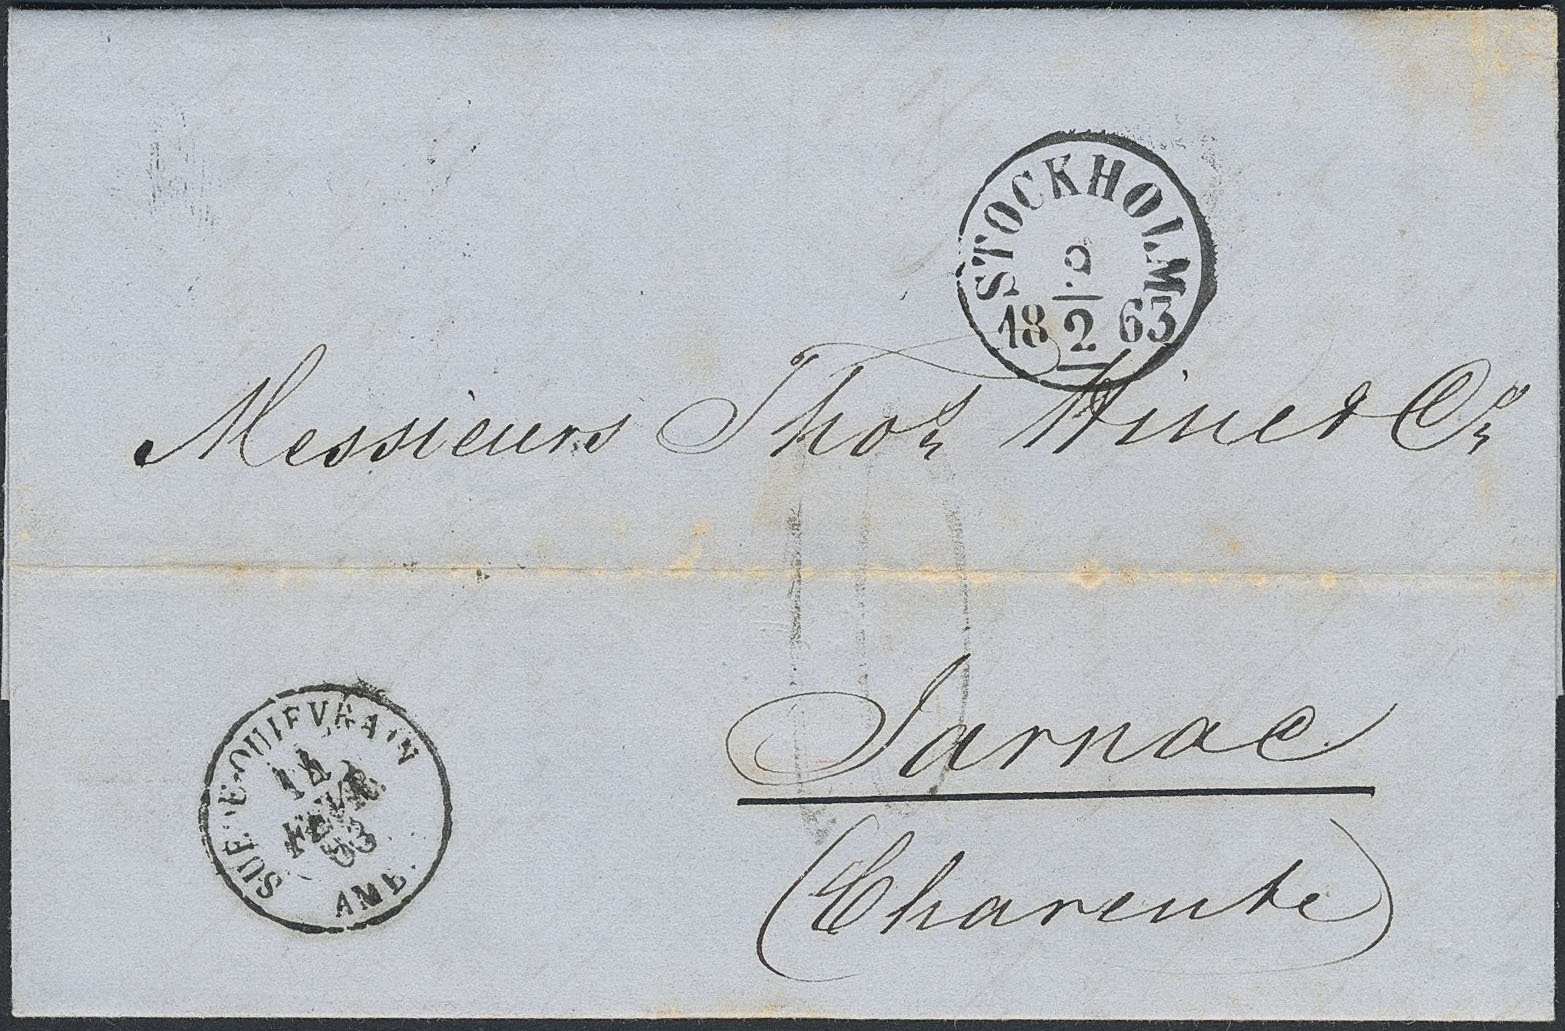 STOCKHOLM
2
18 2 63
Messieurs Thos Hine & Co
Jarnac
(Charente)
SUÈDE-QUIEVRAIN
FEVR
63
AMB.